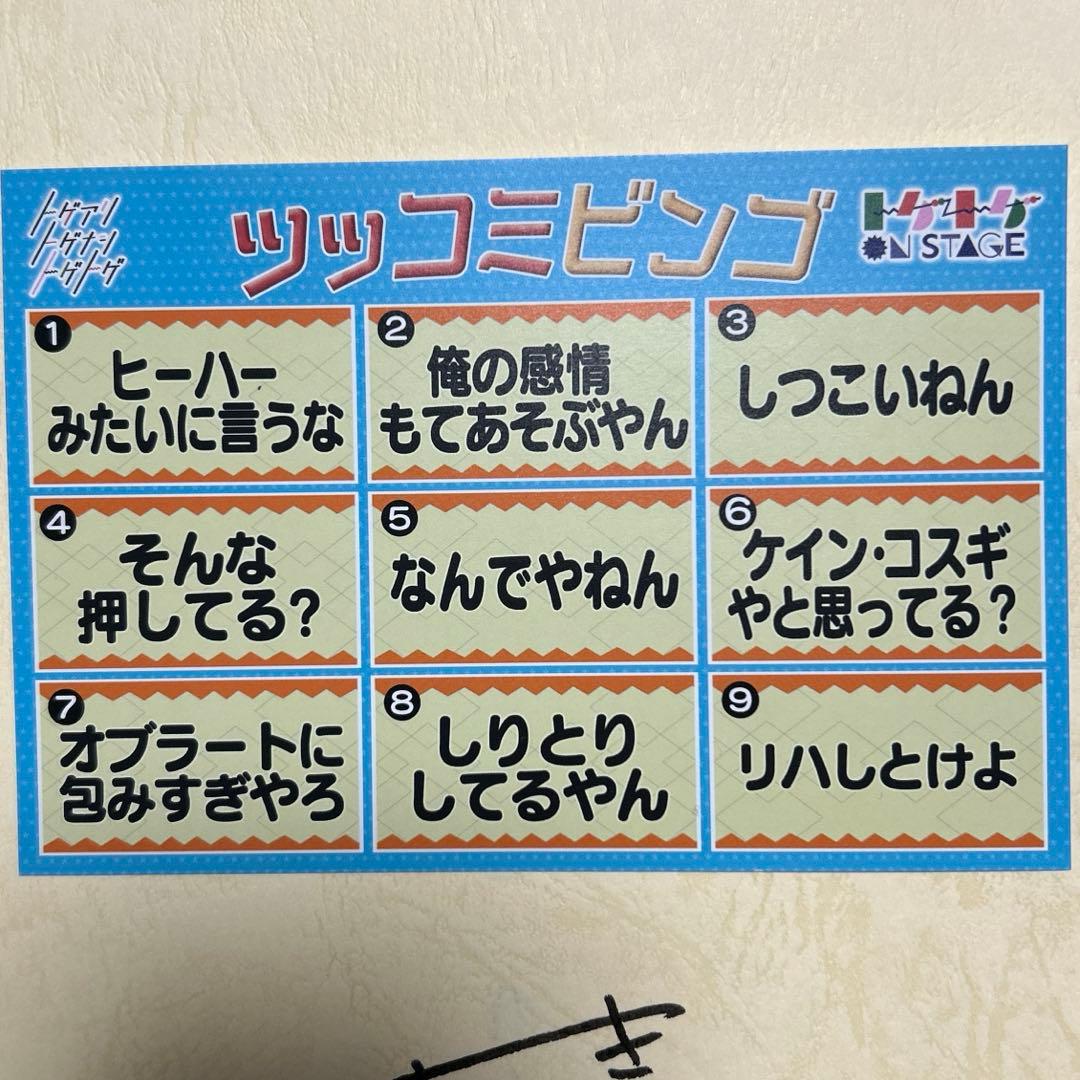 トゲアリ
トゲナシ
トゲトゲ
ツッコミビンゴ
トゲトゲ
ON STAGE
1
ヒーハー
みたいに言うな
2
俺の感情
もてあそぶやん
3
しつこいねん
4
そんな
押してる?
5
なんでやねん
6
ケイン・コスギ
やと思ってる?
7
オブラートに
包みすぎやろ
8
しりとり
してるやん
9
リハしとけよ